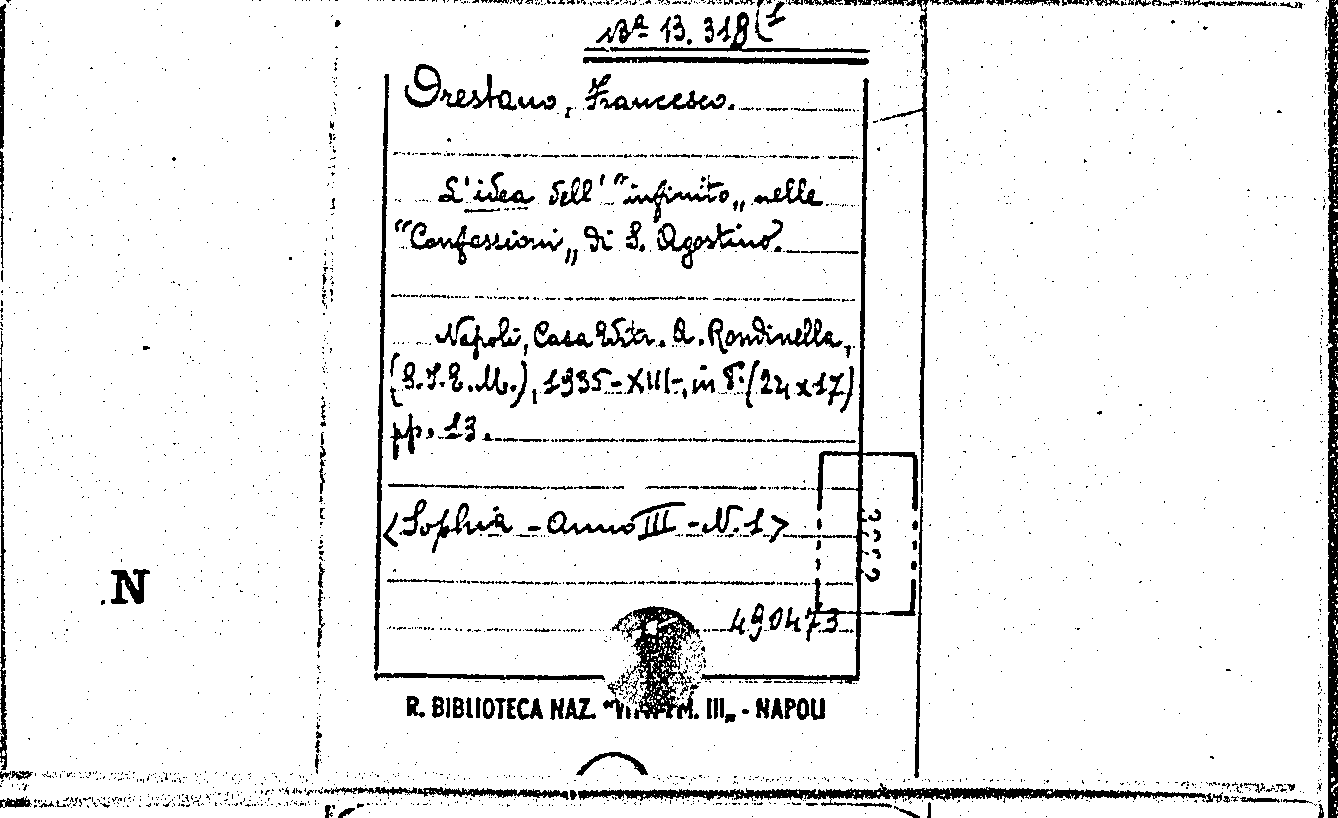 Bª 13.318(1
Orestano, Francesco.
L'idea dell' "infinito„ nelle
"Confessioni„ di S. Agostino.
Napoli, Casa Editr. A. Rondinella,
(S.I.E.M.), 1935-XIII-, in 8.° (24x17)
pp. 13.
<Sophia - Anno III - N. 1>
N
490473
R. BIBLIOTECA NAZ. "VITT. EM. III„ - NAPOLI